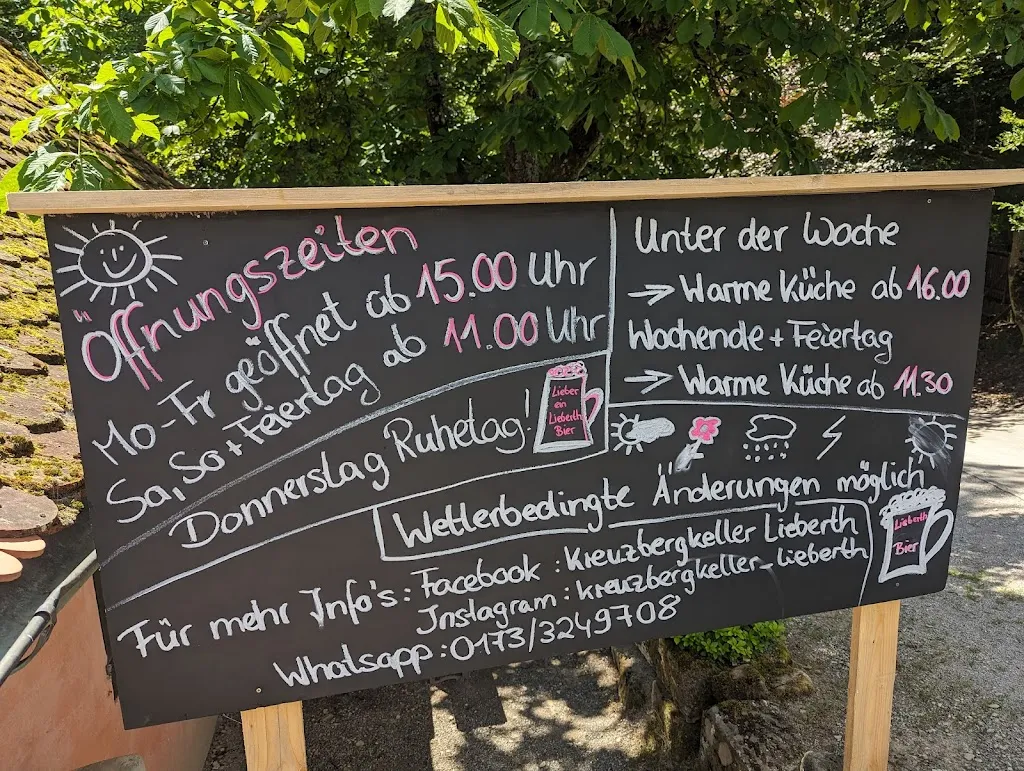 Öffnungszeiten
Mo-Fr geöffnet ab 15.00 Uhr
Sa, So + Feiertag ab 11.00 Uhr
Donnerstag Ruhetag!
Lieber
ein
Lieberth
Bier
Unter der Woche
→ Warme Küche ab 16.00
Wochende + Feiertag
→ Warme Küche ab 11.30
Wetterbedingte Änderungen möglich
Für mehr Info's: Facebook: Kreuzbergkeller Lieberth
Instagram: kreuzbergkeller_lieberth
Whatsapp: 0173/3249708
Lieberth
Bier